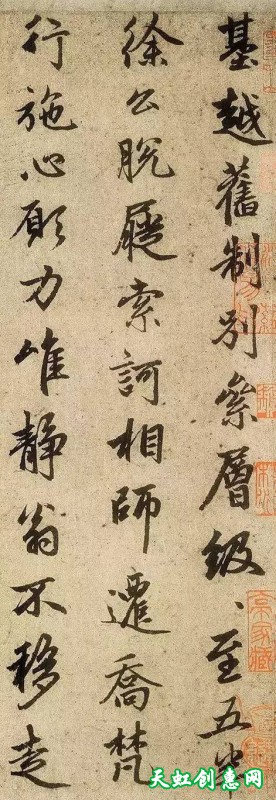 基越舊制別絫層級、至五峯
徐公脫屣索訶相師遷喬梵
行施心願力唯靜翁不移走
天虹创惠网